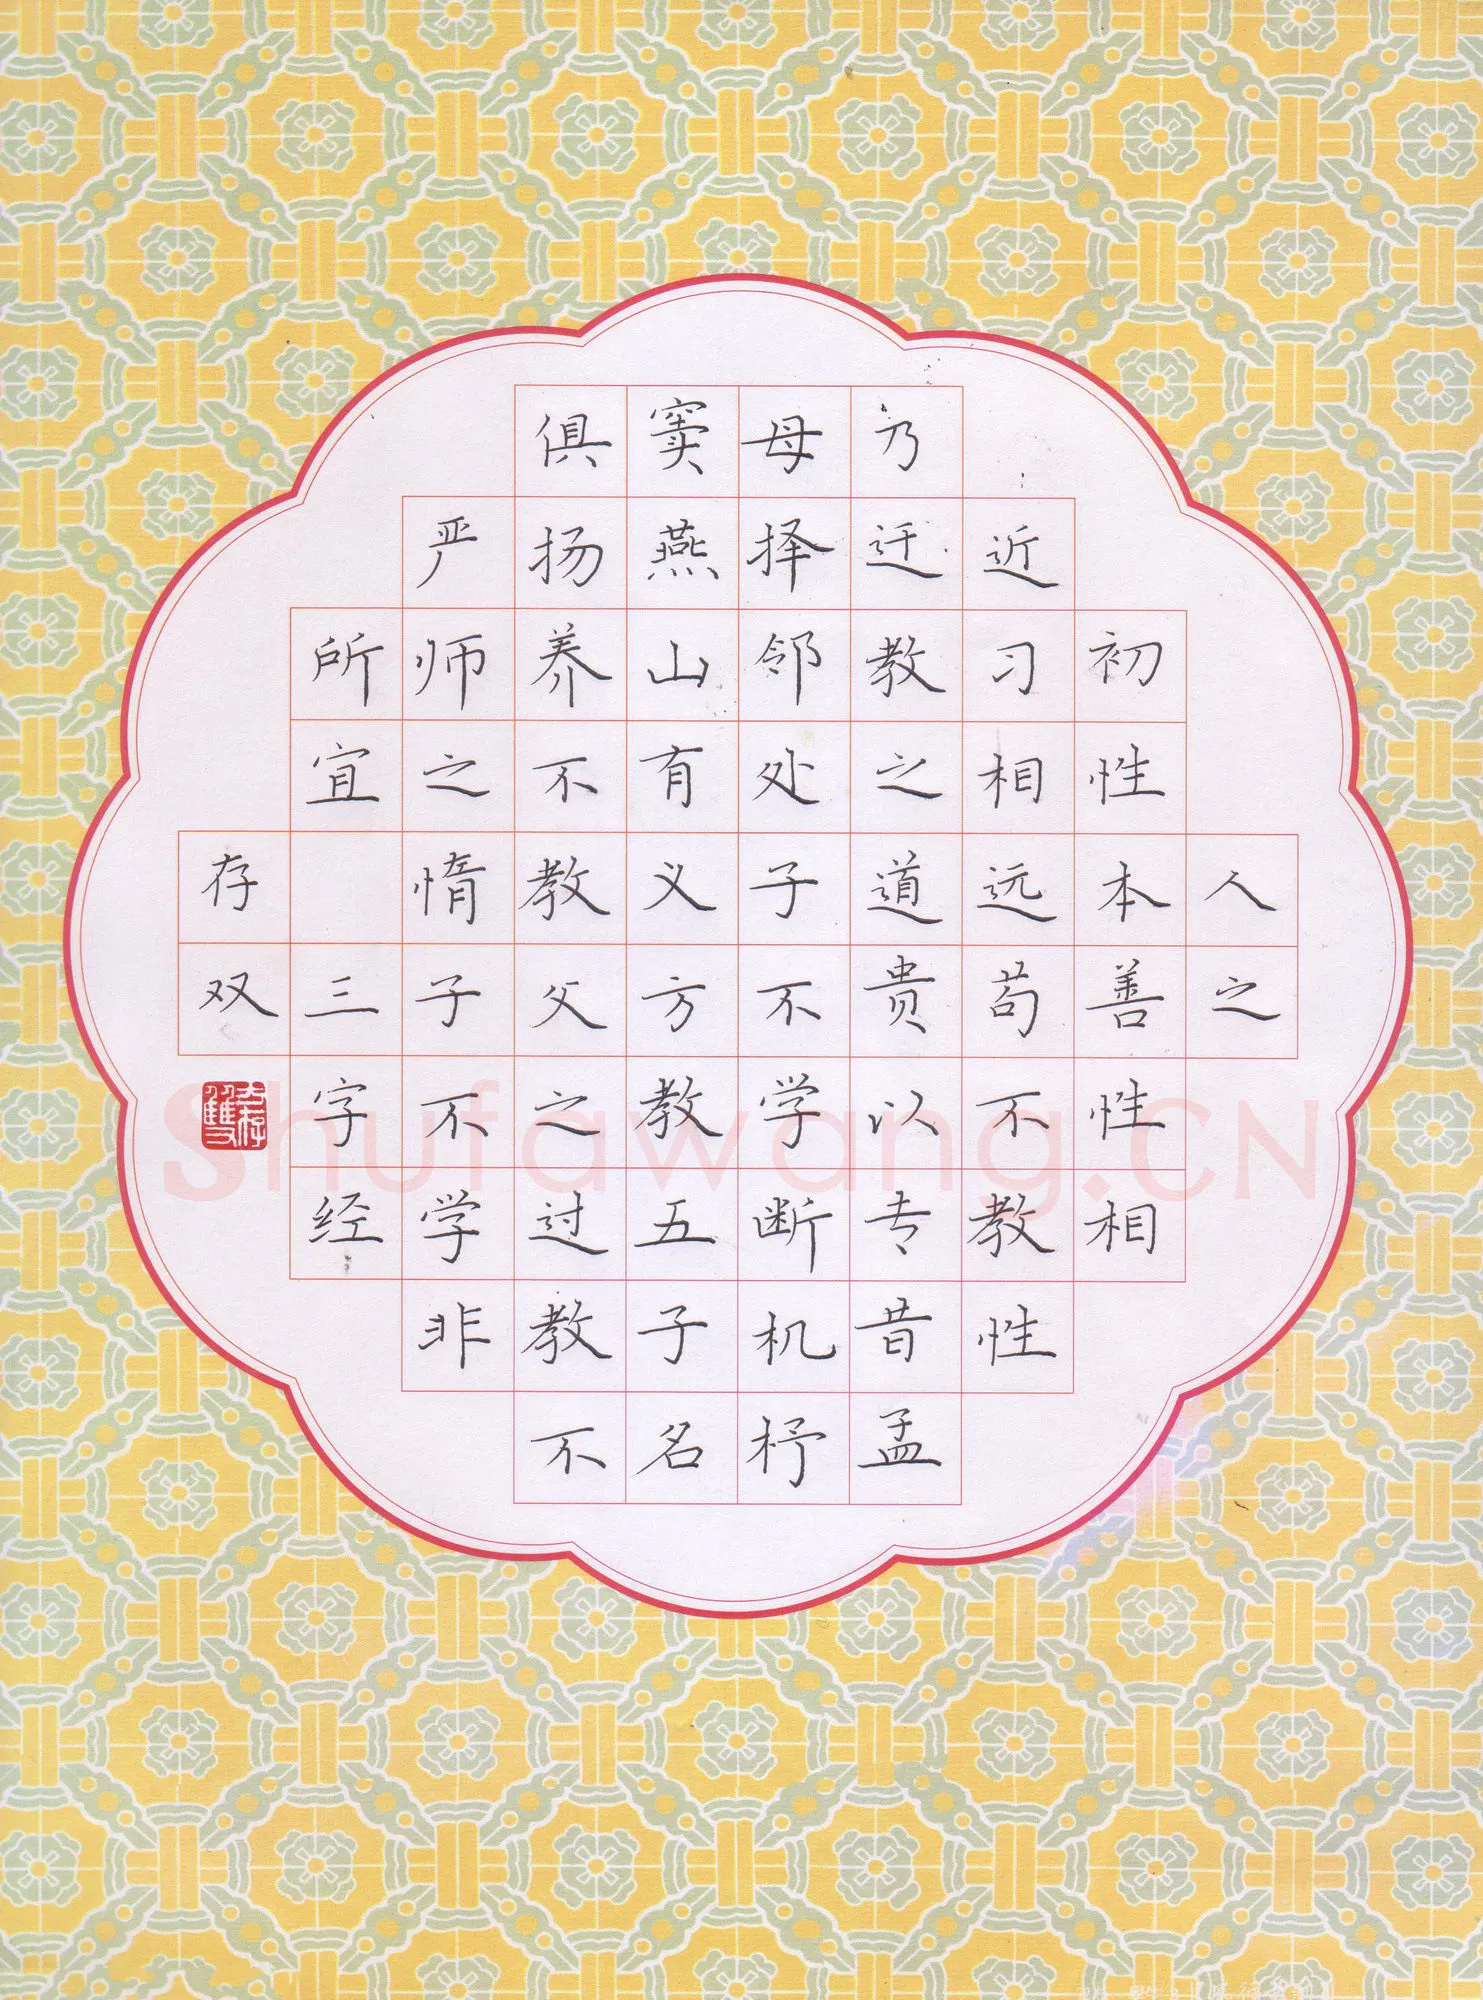 人之
初性本善性相
近习相远苟不教性
乃迁教之道贵以专昔孟
母择邻处子不学断机杼
窦燕山有义方教五子名
俱扬养不教父之过教不
严师之惰子不学非
所宜 三字经
存双
Shufawang.CN